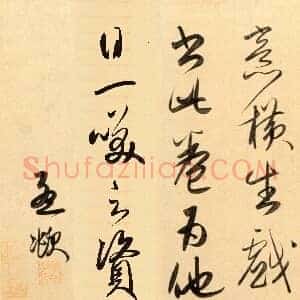 意橫生戲
書此卷為他
日一笑之資
孟頫
Shufaziliao.COM